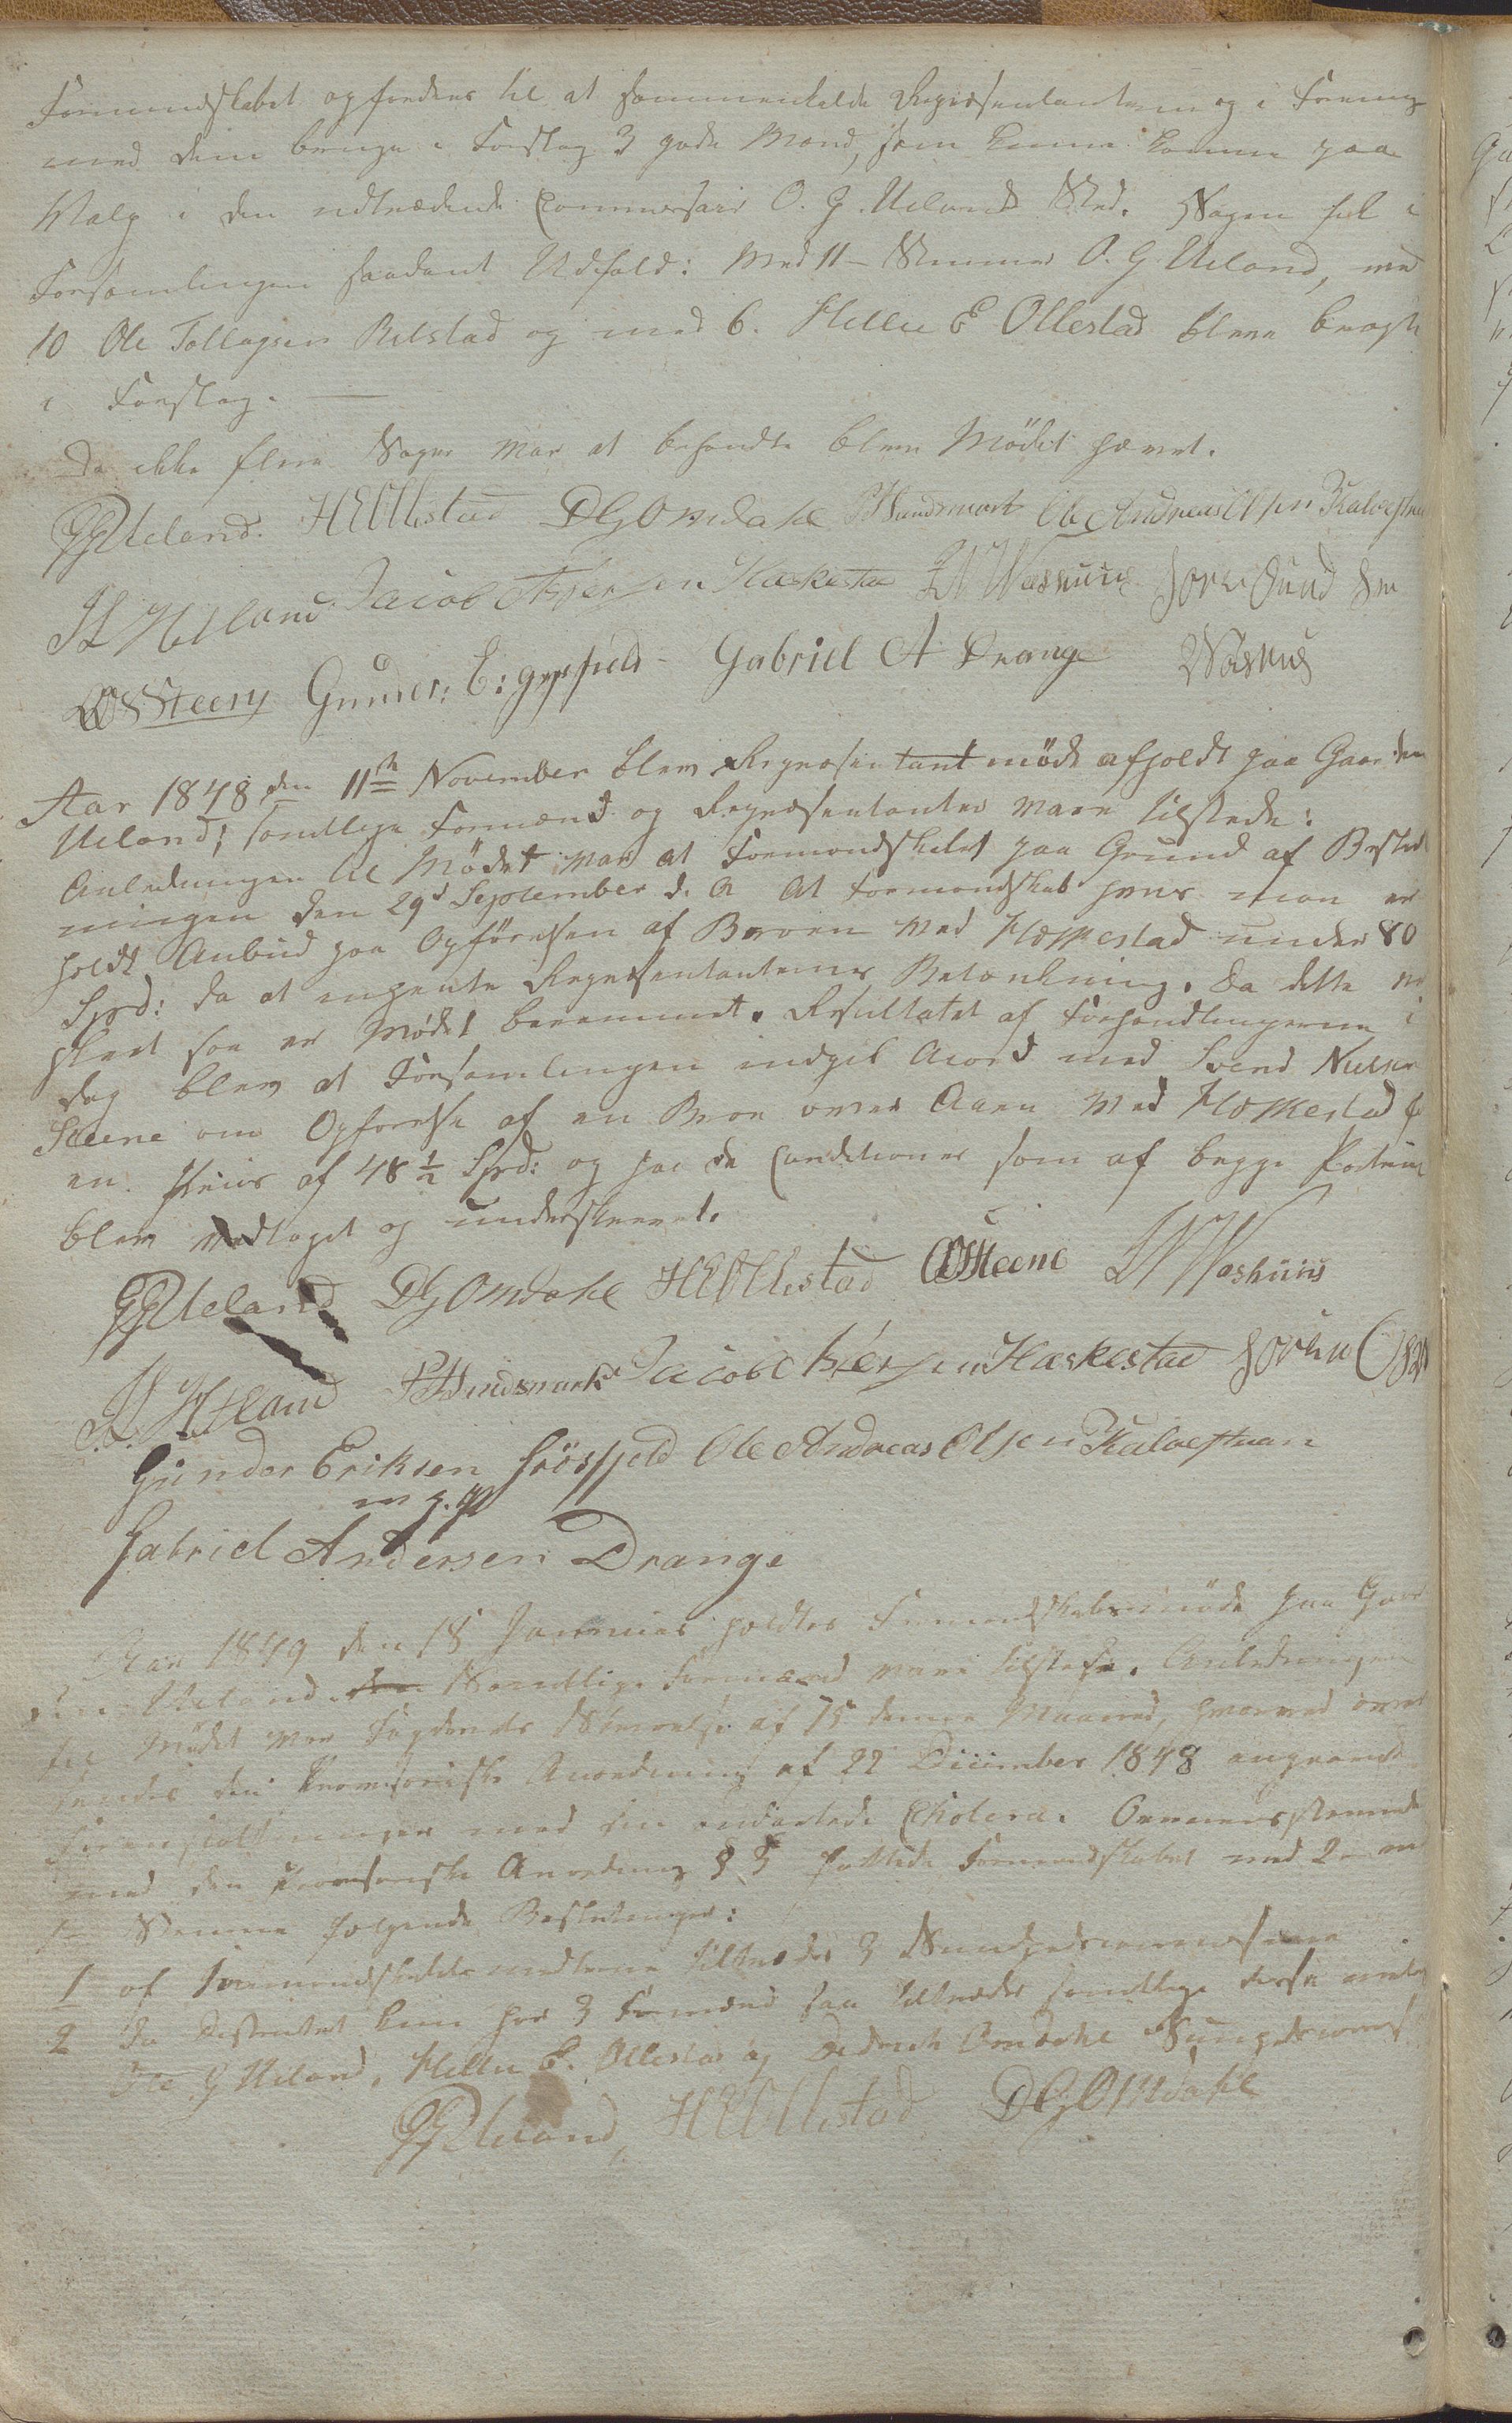 Formandskabet opfordres til at sammenkalde Repræsentanterne og i Forening
med dem bringe i Forslag 3 gode Mænd, som kunne komme paa
Valg i den udtrædende Commissair O. G. Uelands Sted. Sagen fik i
Forsamlingen saadant Udfald: Med 11 Stemmer O. G. Ueland, med
10 Ole Tollagsen Relstad og med 6. Hellie E Ollestad blev bragt
i Forslag. —
Da ikke flere Sager var at behandle blev Mødet hævet.
OGUeland. HEOllestad DGOmdahl PHundsmark Ole Andreas Olsen Kalvestuen
Hetland Jacob Kaskestad Washuus
OSSteene Gunder: E: Gysfield Gabriel A Drange Washus
Aar 1848 den 11te November blev Repræsentantmöde afholdt paa Gaarden
Ueland; samtlige Formænd og Repræsentanter vare tilstede:
Anledningen til Mødet var at Formandskabet paa Grund af Bestem
mingen den 29d September d. A at Formandskab hvis man er
holdt Anbud paa Opförelsen af Broen ved Hæskestad under 80
Spd: da at ingente Repræsentanternes Betænkning. Da dette er
skeet saa er Mødet berammet. Resultatet af Forhandlingerne i
dag blev at Forsamlingen indgik Acord med Svend Nielsen
Steene om Opførelse af en Broe over Aaen ved Hæskestad for
en Priis af 48 ½ Spd: og paa de Conditioner som af begge Parter
blev vedtaget og underskrevet.
OGUeland DGOmdahl HEOllestad OSSteene Washuus
Hetland PHundsmark Jacob Hæskestad
Gunder Eriksen Grösfjeld Ole Andreas Olsen Kalvestuen
m. f. P
Gabriel Andersen Drange
Aar 1849 den 18 Januar holdtes Formandskabsmöde paa Gaar
den Ueland. Samtlige Formænd vare tilstede. Anledningen
til Mødet var Fogdens Skrivelse af 15 denne Maaned, hvorved over
sendes den Provisoriske Anordning af 22 December 1848 angaaende
Foranstaltninger mod den ondartede Cholera. Overensstemmende
med den Provisoriske Anordning § 3 fattede Formandskabet med 2 mod
1 Stemme følgende Beslutninger:
1 af Formandskabets medlemer tiltræder 3 Sundhedscommissionen
2 Da Distriktet kun har 3 Formænd saa tiltræder samtlige disse nemlig
Ole G Ueland, Hellie E. Ollestad og Didrich Omdahl Sundhedscommis
OGUeland, HEOllestad DGOmdahl